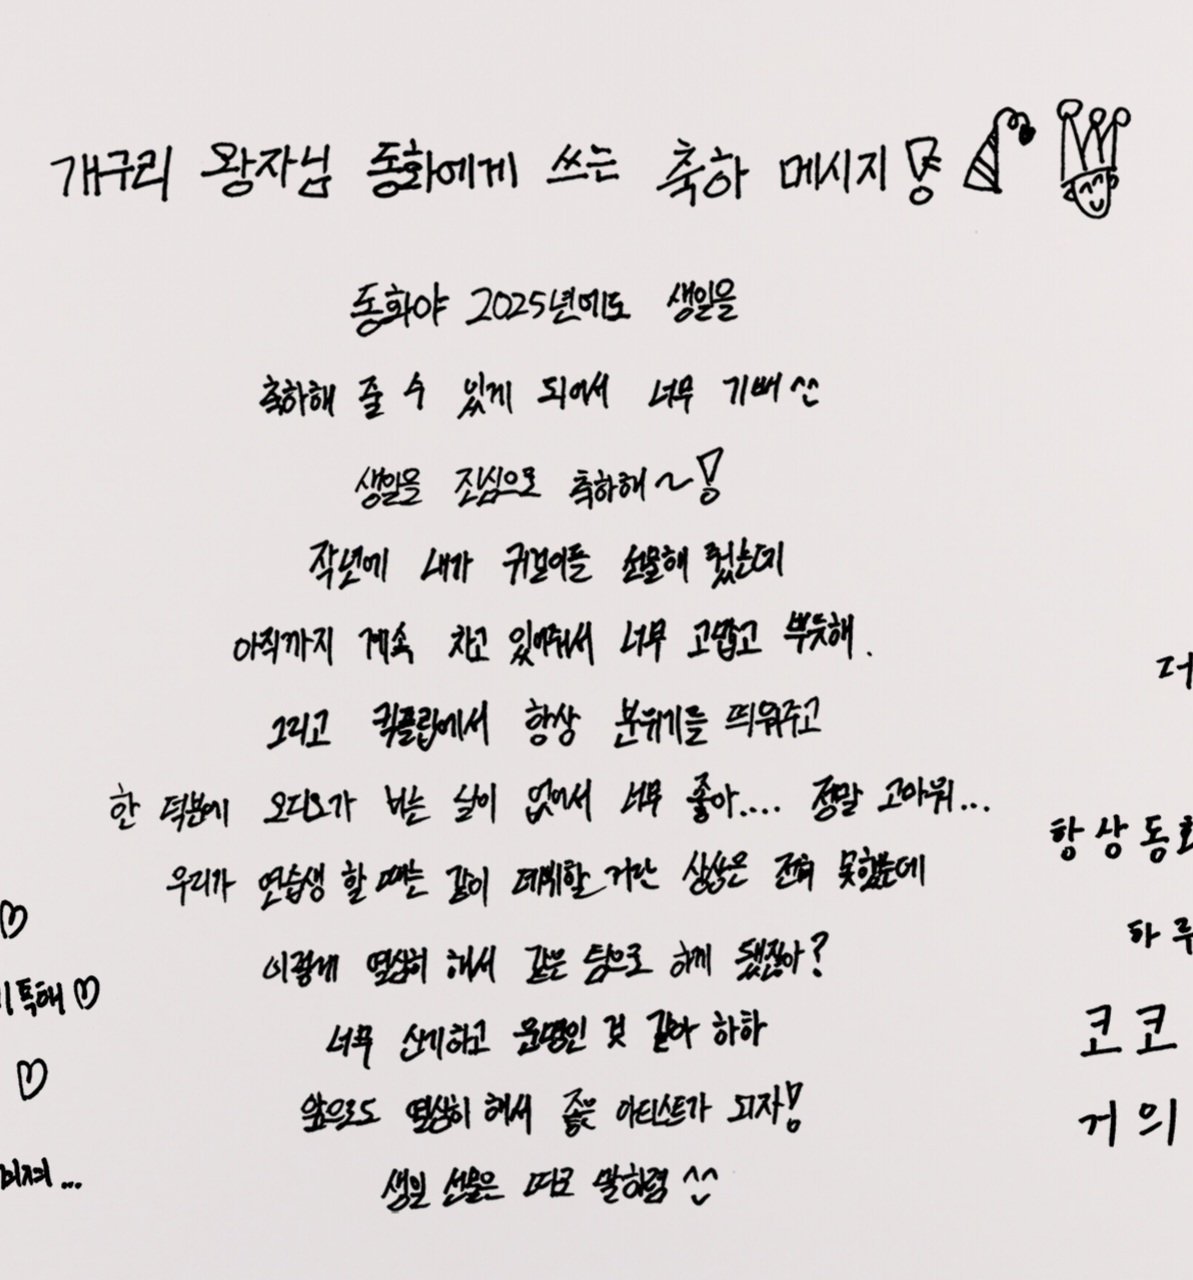 개구리 왕자님 동화에게 쓰는 축하 메시지!
동화야 2025년에도 생일을
축하해 줄 수 있게 되어서 너무 기뻐^^
생일을 진심으로 축하해~!
작년에 내가 귀걸이를 선물해 줬는데
아직까지 계속 차고 있어줘서 너무 고맙고 뿌듯해.
그리고 킥플립에서 항상 분위기를 띄워주고
한 덕분에 오디오가 비는 일이 없어서 너무 좋아.... 정말 고마워...
우리가 연습생 할 때는 같이 데뷔할 거란 상상은 전혀 못했는데
이렇게 열심히 해서 같은 팀으로 하게 됐잖아?
너무 신기하고 운명인 것 같아 하하
앞으로도 열심히 해서 좋은 아티스트가 되자!
생일 선물은 따로 말하렴 ^^
♡
기특해♡
♡
미쳐...
더
항상동화
하루
코코
거의